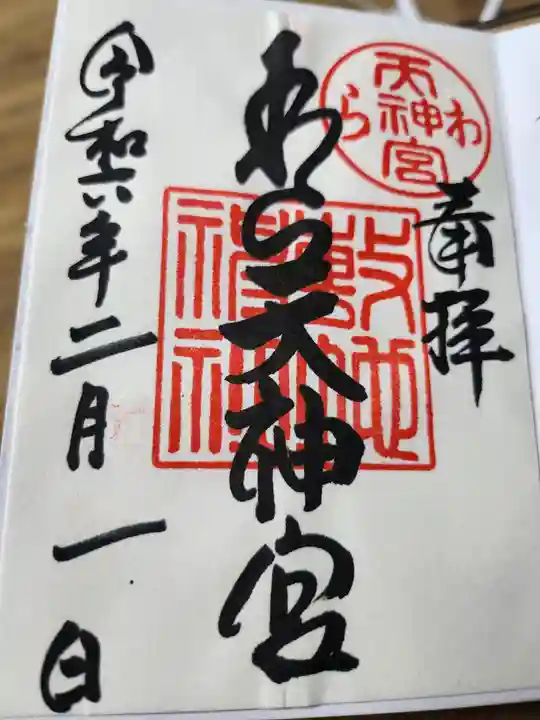 奉拝
わら天神宮
敷地
わら天神宮
令和六年二月一日